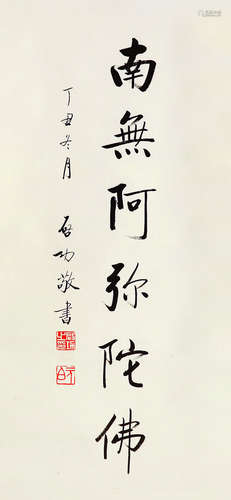 南無阿弥陀佛
丁丑冬月 启功敬書